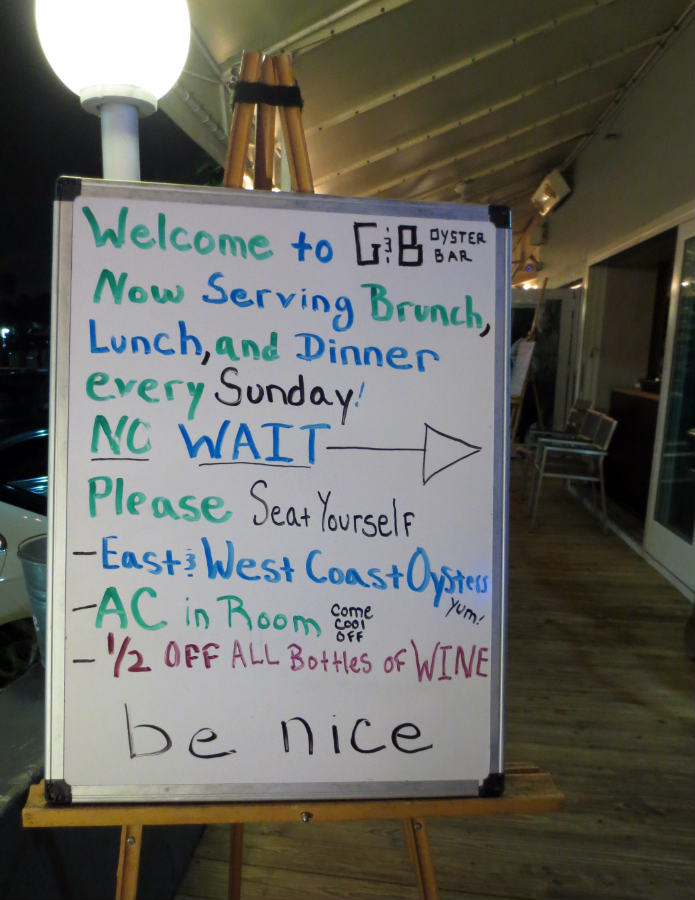 Welcome to G&B OYSTER BAR
Now Serving Brunch,
Lunch, and Dinner
every Sunday!
NO WAIT
Please Seat Yourself
- East & West Coast Oysters yum!
- AC in Room come cool off
- 1/2 OFF ALL Bottles of WINE
be nice